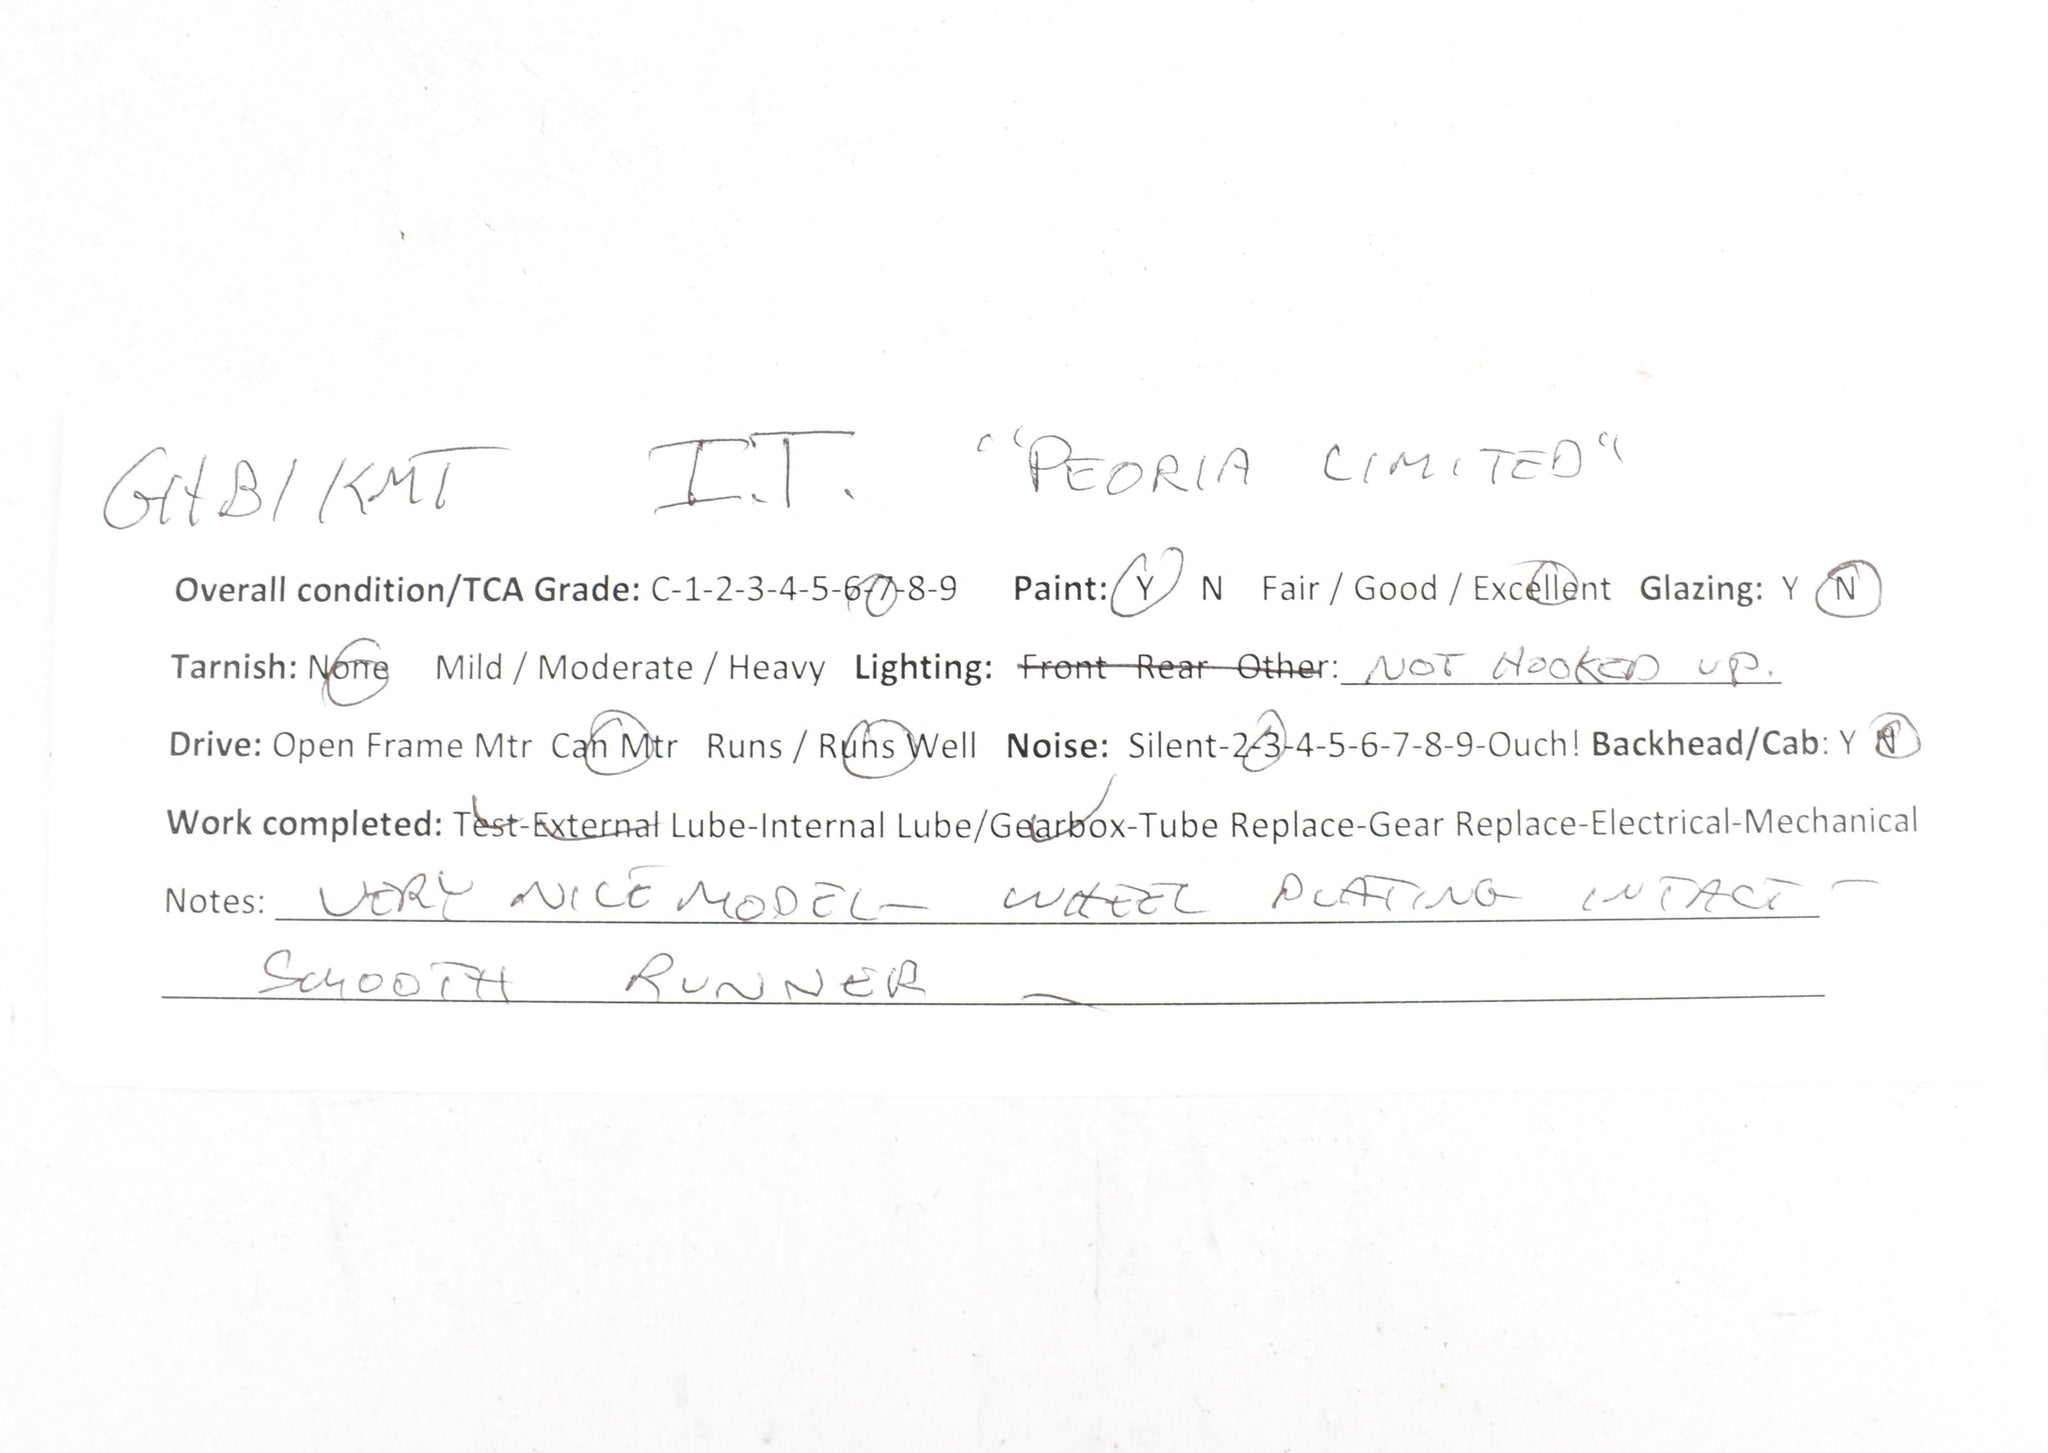 GHB/KMT I.T. "PEORIA LIMITED"
Overall condition/TCA Grade: C-1-2-3-4-5-6-7-8-9 Paint: Y N Fair / Good / Excellent Glazing: Y N
Tarnish: None Mild / Moderate / Heavy Lighting: Front Rear Other: NOT HOOKED UP.
Drive: Open Frame Mtr Can Mtr Runs / Runs Well Noise: Silent-2-3-4-5-6-7-8-9-Ouch! Backhead/Cab: Y N
Work completed: Test-External Lube-Internal Lube/Gearbox-Tube Replace-Gear Replace-Electrical-Mechanical
Notes: VERY NICE MODEL- WHEEL PLATING INTACT -
SMOOTH RUNNER